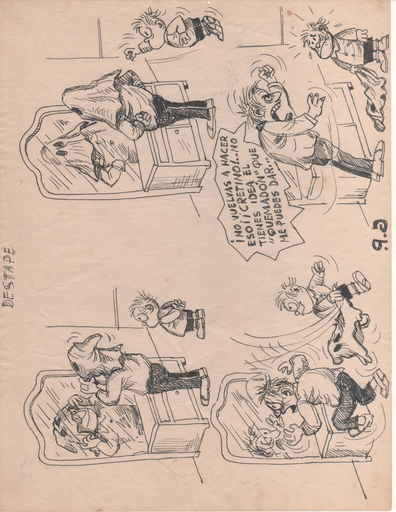 DESTAPE
¡NO VUELVAS A HACER
ESO¡¡ ¡CRETINO!...¡NO
TIENES IDEA EL
"QUEMADÓN" QUE
ME PUEDES DAR...